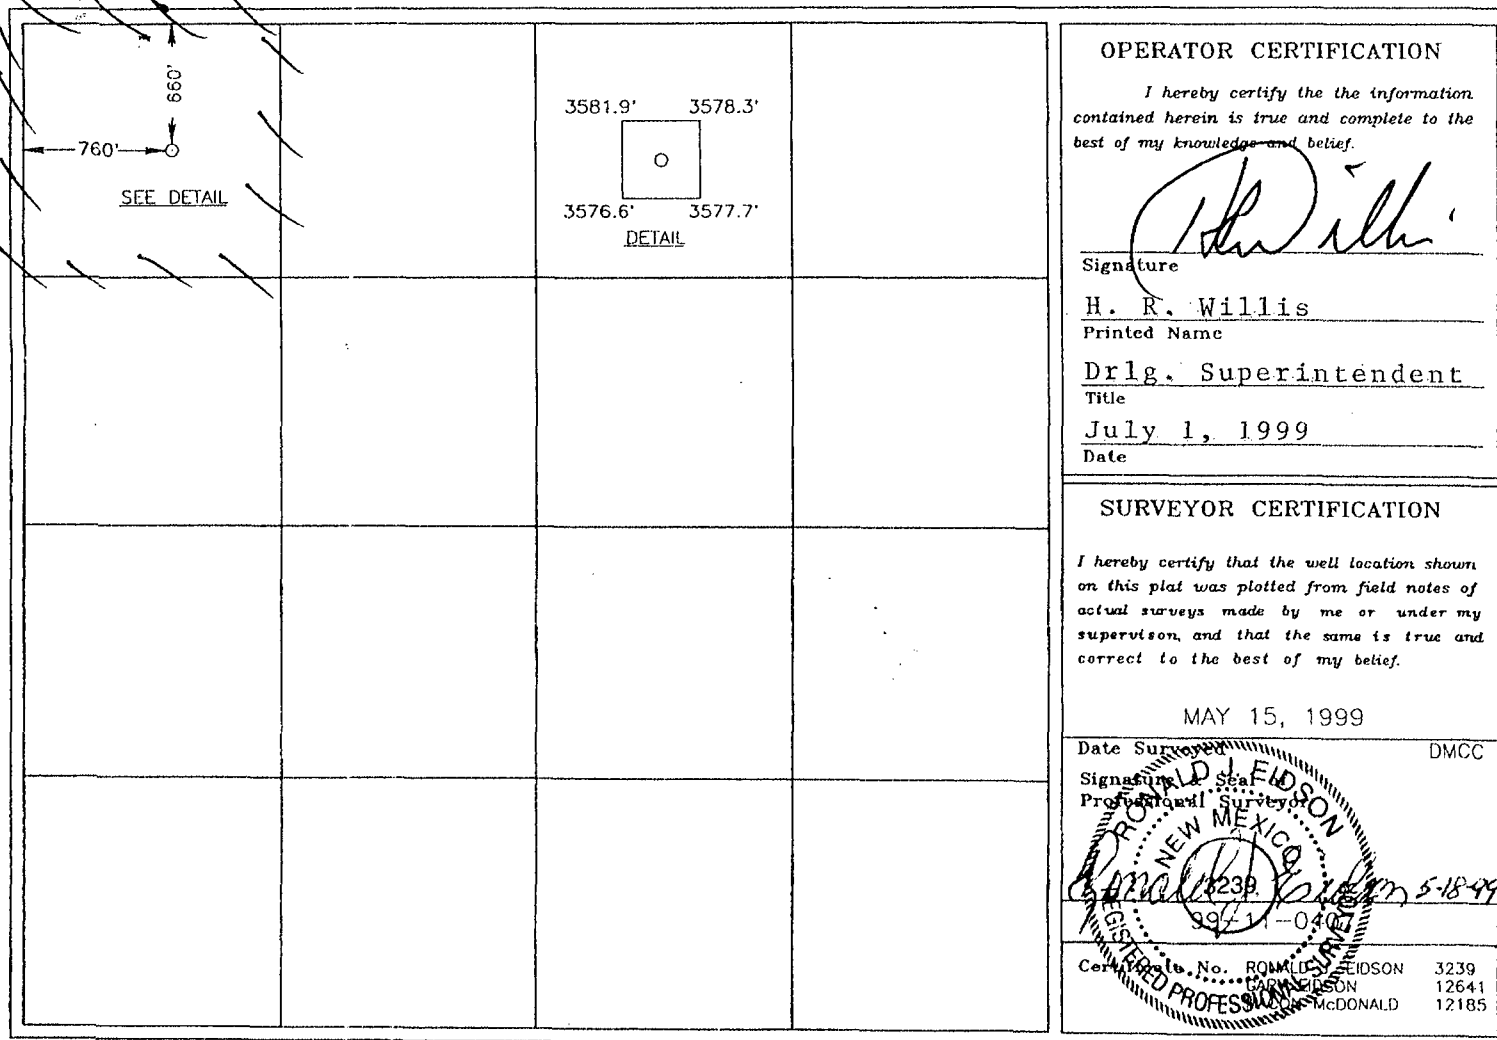 660'
760'
SEE DETAIL
3581.9' 3578.3'
3576.6' 3577.7'
DETAIL
OPERATOR CERTIFICATION
I hereby certify the the information
contained herein is true and complete to the
best of my knowledge and belief.
Signature
H. R. Willis
Printed Name
Drlg. Superintendent
Title
July 1, 1999
Date
SURVEYOR CERTIFICATION
I hereby certify that the well location shown
on this plat was plotted from field notes of
actual surveys made by me or under my
supervison, and that the same is true and
correct to the best of my belief.
MAY 15, 1999
Date Surveyed DMCC
Signature & Seal of
Professional Surveyor
RONALD J. EIDSON
NEW MEXICO
3239
REGISTERED PROFESSIONAL SURVEYOR
Ronald J. Eidson 5-18-99
99-11-0407
Certificate No. RONALD J. EIDSON 3239
GARY EIDSON 12641
McDONALD 12185